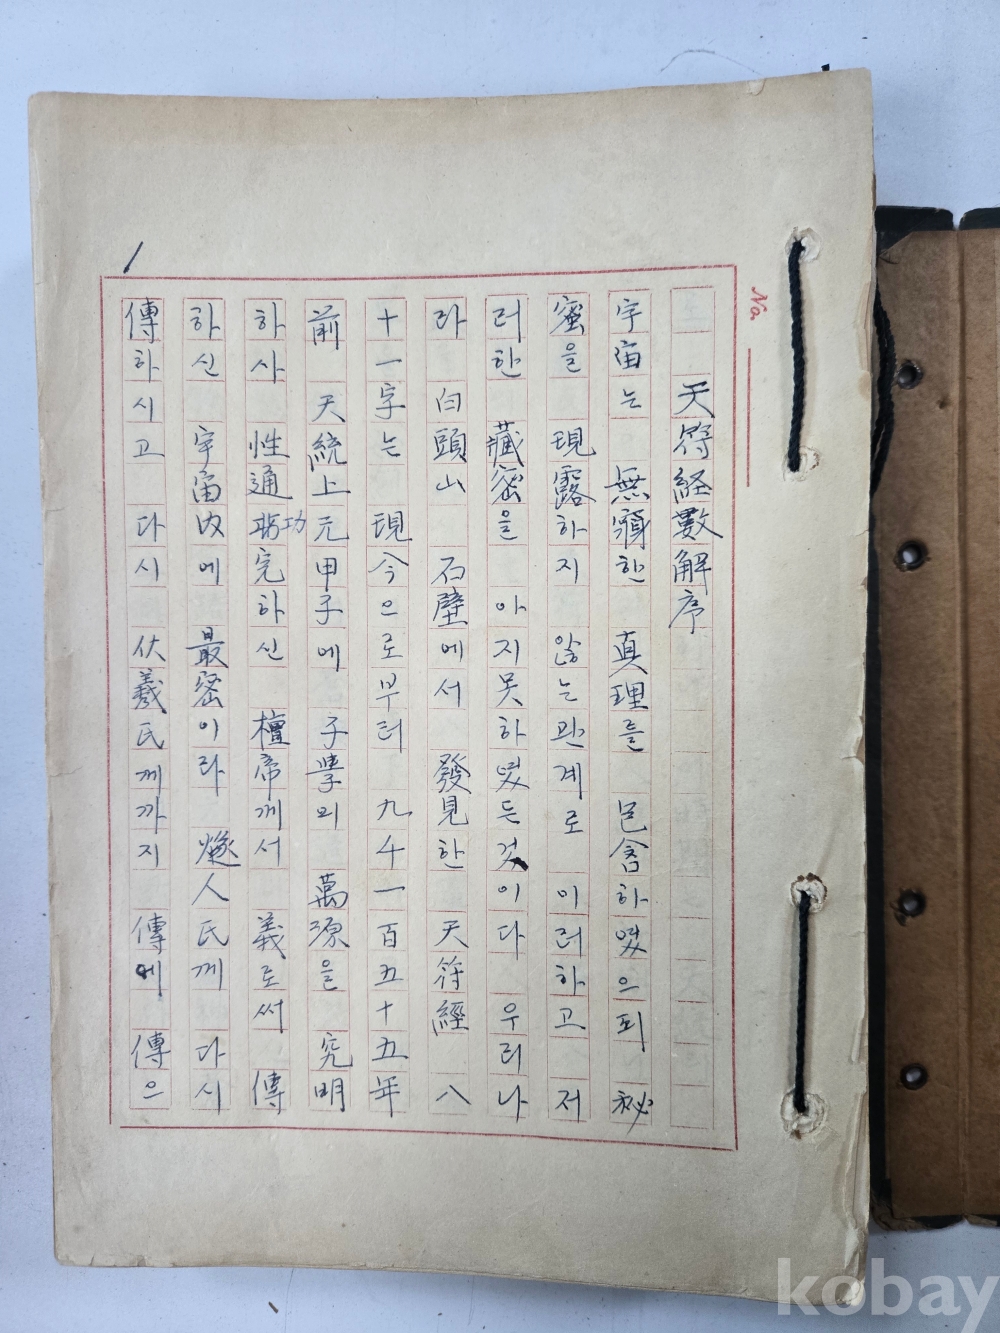 No.
天符経數解序
宇宙는 無窮한 真理를 包含하였으되 秘
蜜을 現露하지 않는관계로 이러하고 저
러한 藏密을 아지못하였든것이다 우리나
라 白頭山 石壁에서 發見한 天符經 八
十一字는 現今으로부터 九千一百五十五年
前 天統上元甲子에 子學의 萬源을 究明
하사 性通功完하신 檀帝께서 義로써 傳
하신 宇宙內에 最密이라 燧人氏께 다시
傳하시고 다시 伏羲氏께까지 傳에 傳으
1
kobay